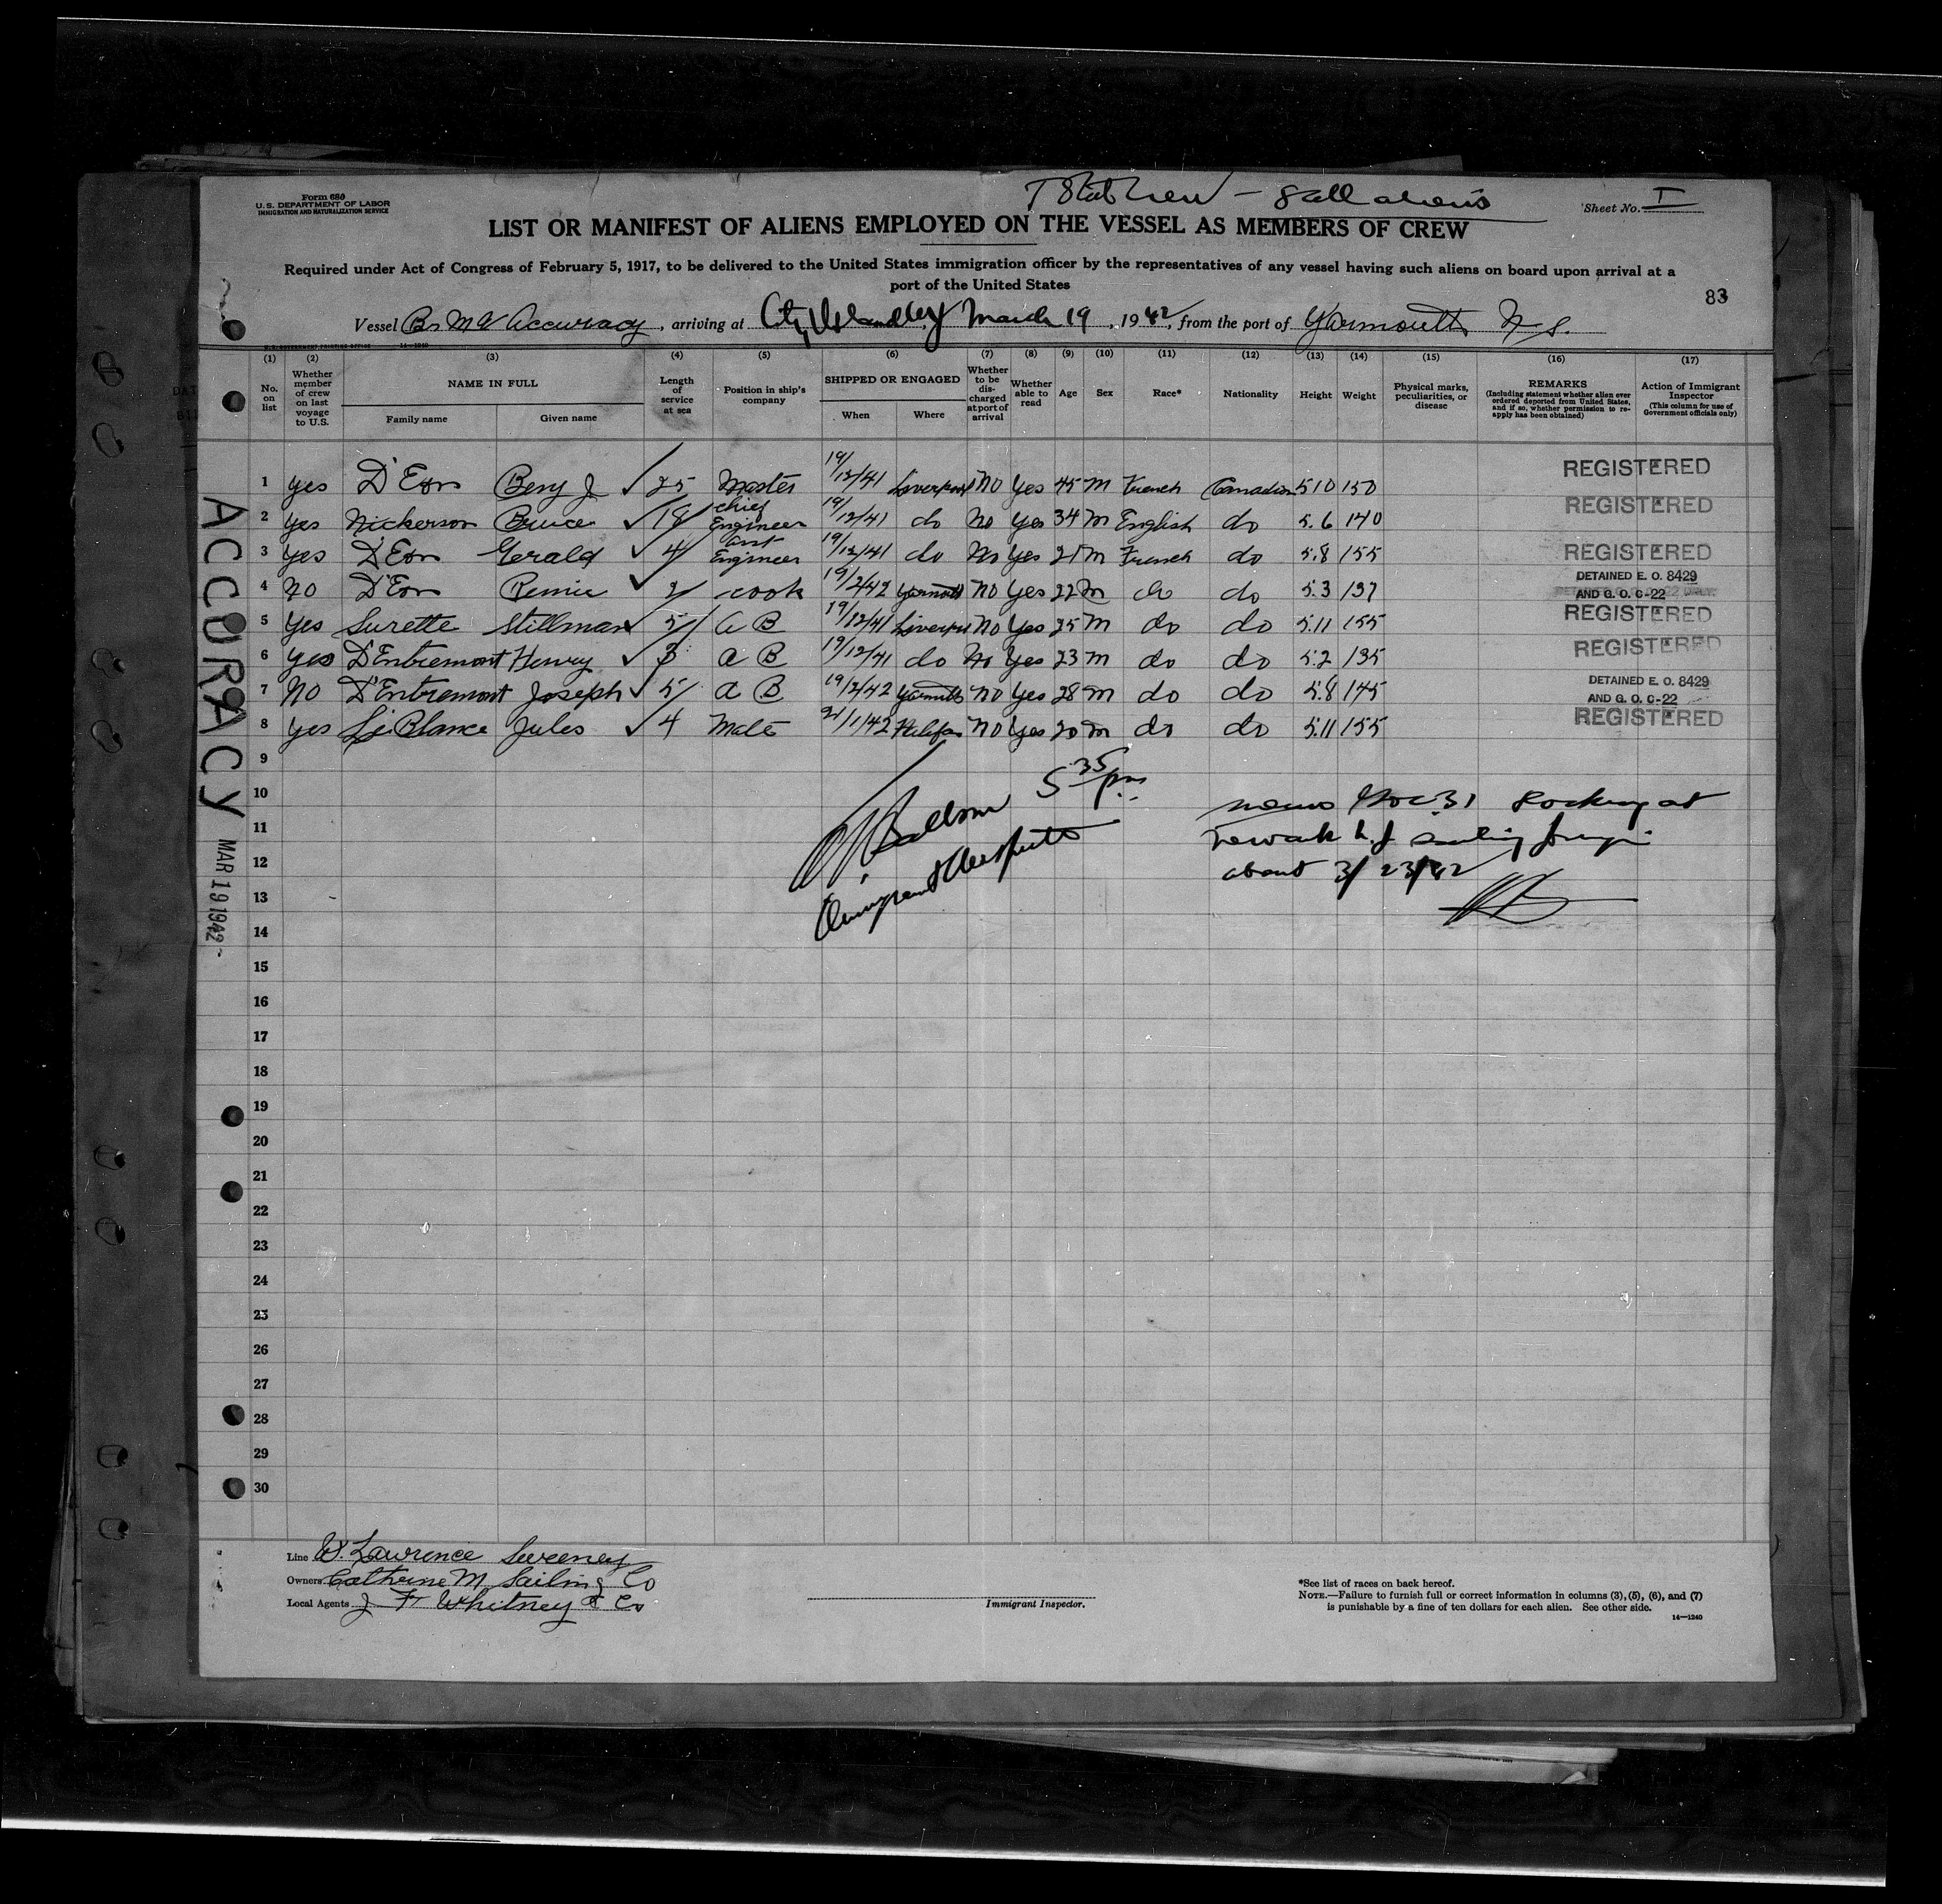 Form 680
U.S. DEPARTMENT OF LABOR
IMMIGRATION AND NATURALIZATION SERVICE
8 all aliens
Sheet No. I
LIST OR MANIFEST OF ALIENS EMPLOYED ON THE VESSEL AS MEMBERS OF CREW
Required under Act of Congress of February 5, 1917, to be delivered to the United States immigration officer by the representatives of any vessel having such aliens on board upon arrival at a
port of the United States
83
Vessel Br M V Accuracy, arriving at City Island NY March 19, 1942, from the port of Yarmouth N S.
(1) (2) (3) (4) (5) (6) (7) (8) (9) (10) (11) (12) (13) (14) (15) (16) (17)
No. on list
Whether member of crew on last voyage to U.S.
NAME IN FULL
Family name Given name
Length of service at sea
Position in ship's company
SHIPPED OR ENGAGED
When Where
Whether to be discharged at port of arrival
Whether able to read
Age
Sex
Race*
Nationality
Height
Weight
Physical marks, peculiarities, or disease
REMARKS
(Including statement whether alien ever ordered deported from United States, and if so, whether permission to reapply has been obtained)
Action of Immigrant Inspector
(This column for use of Government officials only)
1 yes D'Eon Beny J 25 Master 19/12/41 Liverpool No Yes 45 M French Canadian 5 10 150 REGISTERED
2 yes Nickerson Bruce 18 Chief Engineer 19/12/41 do No Yes 34 M English do 5.6 140 REGISTERED
3 yes D'Eon Gerald 4 asst Engineer 19/12/41 do No Yes 21 M French do 5.8 155 REGISTERED
4 No D'Eon 2 cook 19/2/42 Yarmouth No Yes 22 M do do 5.3 137 DETAINED E. O. 8429 AND G. O. C-22
5 Yes Surette Stillman 5 A B 19/12/41 Liverpool No Yes 25 M do do 5.11 155 REGISTERED
6 yes D'Entremont Henry 3 A B 19/12/41 do No Yes 23 M do do 5.2 135 REGISTERED
7 No D'Entremont Joseph 5 A B 19/2/42 Yarmouth No Yes 28 M do do 5.8 145 DETAINED E. O. 8429 AND G. O. C-22
8 yes LeBlance Jules 4 Mate 21/1/42 Halifax No Yes 20 M do do 5.11 155 REGISTERED
9
10
11
12
13
14
15
16
17
18
19
20
21
22
23
24
25
26
27
28
29
30
5 35 pm
Immigrant Inspector
Docking at
Newark N.J. sailing foreign
about 3/23/42
ACCURACY
MAR 19 1942
Line W. Lawrence Sweeney
Owners Catherine M Sailing Co
Local Agents J F Whitney & Co
Immigrant Inspector.
*See list of races on back hereof.
NOTE.—Failure to furnish full or correct information in columns (3), (5), (6), and (7)
is punishable by a fine of ten dollars for each alien. See other side.
14—1240